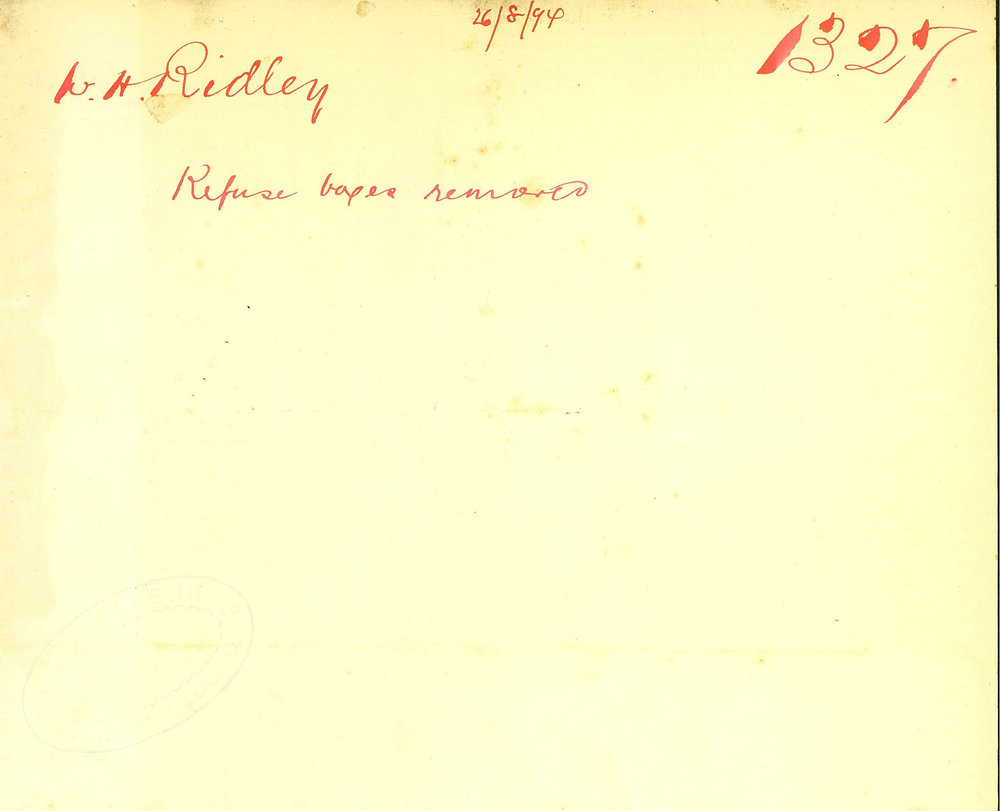 26/8/94
1327.
W. H. Ridley
Refuse boxes removed